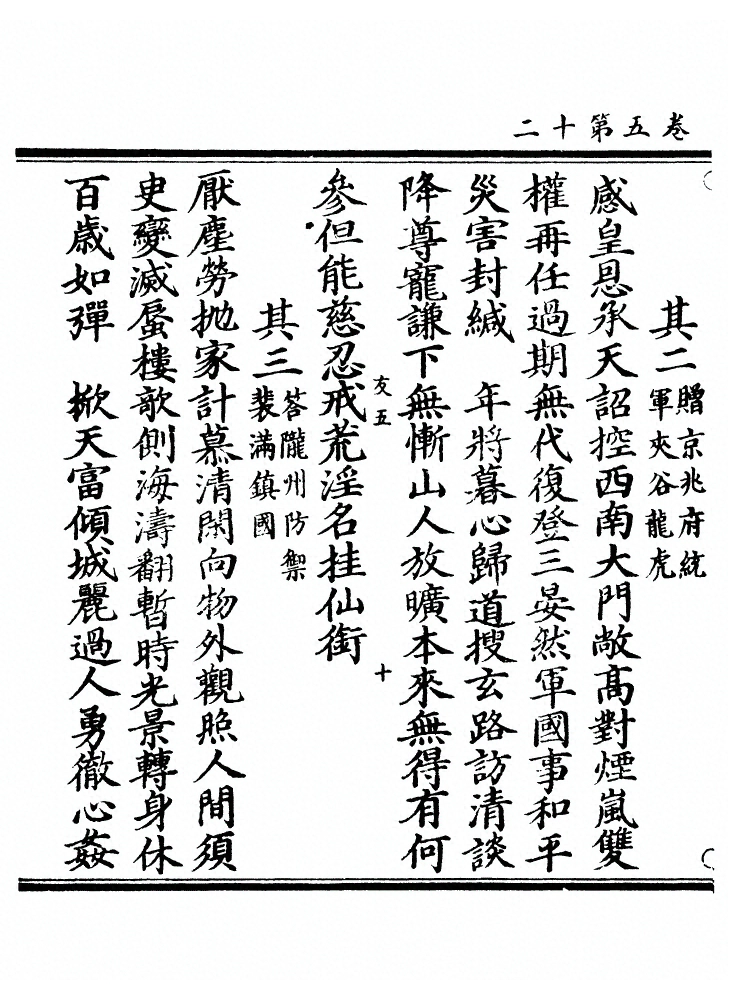 二十第五卷
其二
贈京兆府統
軍夾谷龍虎
感皇恩承天詔控西南大門敞高對煙嵐雙
權再任過期無代復登三晏然軍國事和平
災害封緘　年將暮心歸道搜玄路訪清談
降尊寵謙下無慚山人放曠本來無得有何
友五
十
參但能慈忍戒荒淫名挂仙銜
其三
答隴州防禦
裴滿鎮國
厭塵勞拋家計慕清閑向物外觀照人間須
史變滅蜃樓歌側海濤翻暫時光景轉身休
百歲如彈　掀天富傾城麗過人勇徹心姦